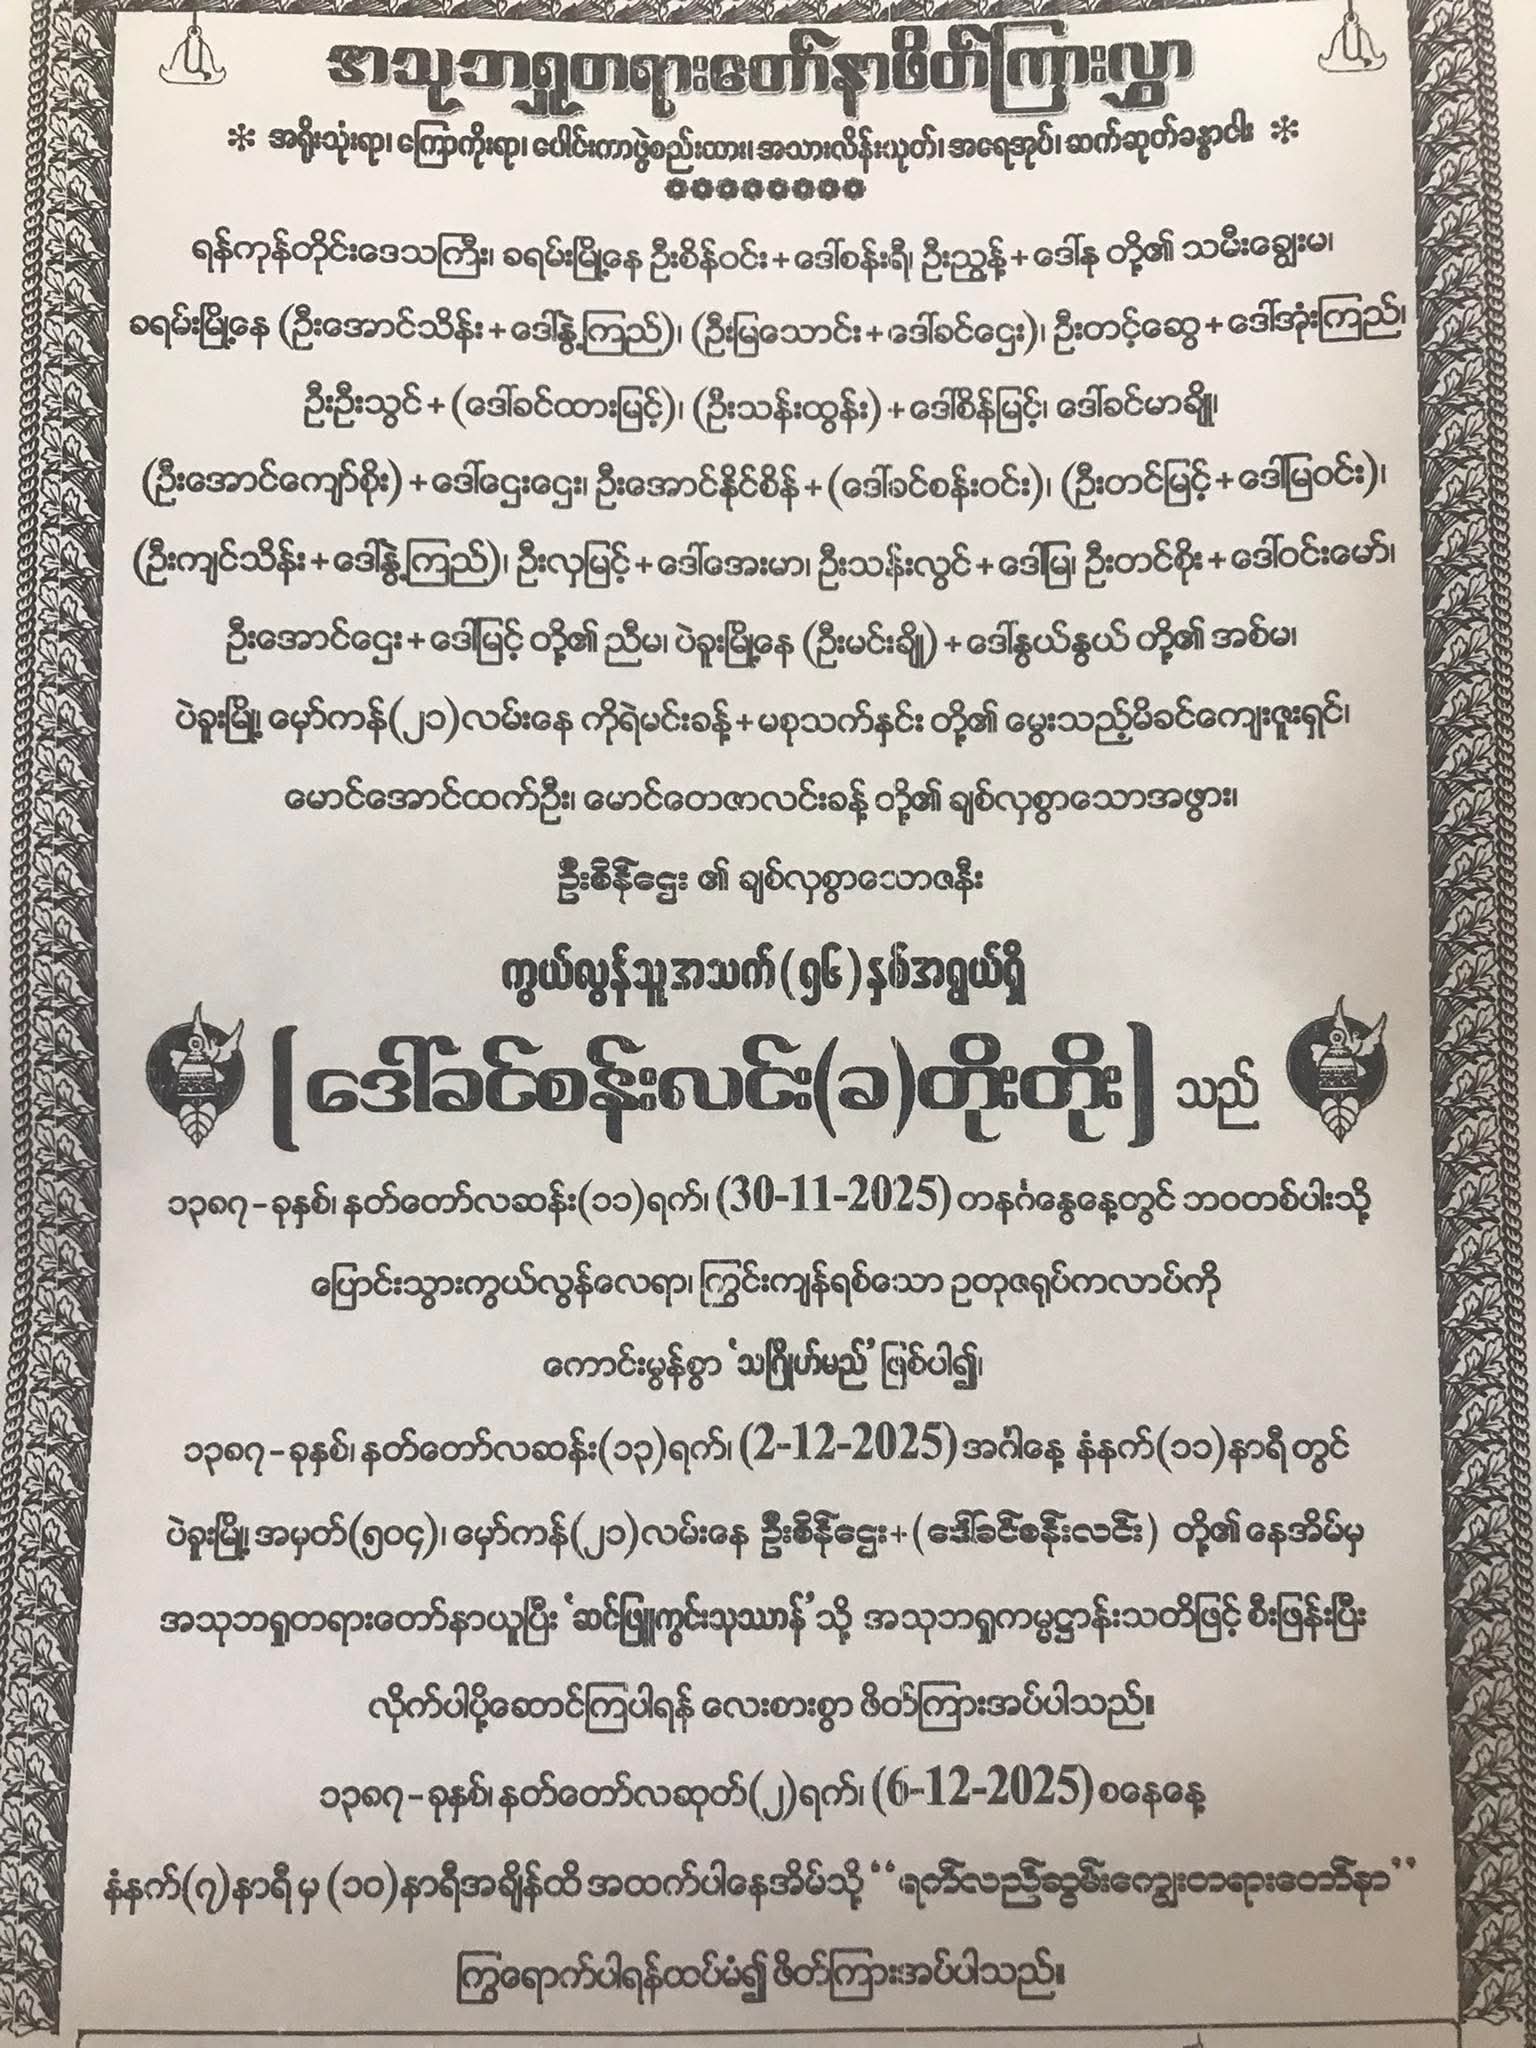 အသုဘရှုတရားတော်နာဖိတ်ကြားလွှာ
* အရိုးသုံးရာ၊ ကြောကိုးရာ၊ ပေါင်းကာဖွဲ့စည်းထား၊ အသားလိန်းယုတ်၊ အရေအုပ်၊ ဆက်ဆုတ်ခန္ဓာငါး *
ရန်ကုန်တိုင်းဒေသကြီး၊ ခရမ်းမြို့နေ ဦးစိန်ဝင်း + ဒေါ်စန်းရီ၊ ဦးညွန့် + ဒေါ်နု တို့၏ သမီးချွေးမ၊
ခရမ်းမြို့နေ (ဦးအောင်သိန်း + ဒေါ်နွဲ့ကြည်)၊ (ဦးမြသောင်း + ဒေါ်ခင်ဌေး)၊ ဦးတင့်ဆွေ + ဒေါ်အုံးကြည်၊
ဦးဦးသွင် + (ဒေါ်ခင်ထားမြင့်)၊ (ဦးသန်းထွန်း) + ဒေါ်စိန်မြင့်၊ ဒေါ်ခင်မာချို၊
(ဦးအောင်ကျော်စိုး) + ဒေါ်ဌေးဌေး၊ ဦးအောင်နိုင်စိန် + (ဒေါ်ခင်စန်းဝင်း)၊ (ဦးတင်မြင့် + ဒေါ်မြဝင်း)၊
(ဦးကျင်သိန်း + ဒေါ်နွဲ့ကြည်)၊ ဦးလှမြင့် + ဒေါ်အေးမာ၊ ဦးသန်းလွင် + ဒေါ်မြ၊ ဦးတင်စိုး + ဒေါ်ဝင်းမော်၊
ဦးအောင်ဌေး + ဒေါ်မြင့် တို့၏ ညီမ၊ ပဲခူးမြို့နေ (ဦးမင်းချို) + ဒေါ်နွယ်နွယ် တို့၏ အစ်မ၊
ပဲခူးမြို့၊ မှော်ကန်(၂၁)လမ်းနေ ကိုရဲမင်းခန့် + မစုသက်နှင်း တို့၏ မွေးသည့်မိခင်ကျေးဇူးရှင်၊
မောင်အောင်ထက်ဦး၊ မောင်တေဇာလင်းခန့် တို့၏ ချစ်လှစွာသောအဖွား၊
ဦးစိန်ဌေး ၏ ချစ်လှစွာသောဇနီး
ကွယ်လွန်သူအသက်(၅၆)နှစ်အရွယ်ရှိ
[ဒေါ်ခင်စန်းလင်း(ခ)တိုးတိုး] သည်
၁၃၈၇-ခုနှစ်၊ နတ်တော်လဆန်း(၁၁)ရက်၊ (30-11-2025) တနင်္ဂနွေနေ့တွင် ဘဝတစ်ပါးသို့
ပြောင်းသွားကွယ်လွန်လေရာ၊ ကြွင်းကျန်ရစ်သော ဥတုဇရုပ်ကလာပ်ကို
ကောင်းမွန်စွာ ‘သဂြိုဟ်မည်’ ဖြစ်ပါ၍၊
၁၃၈၇-ခုနှစ်၊ နတ်တော်လဆန်း(၁၃)ရက်၊ (2-12-2025) အင်္ဂါနေ့ နံနက်(၁၁)နာရီ တွင်
ပဲခူးမြို့၊ အမှတ်(၅၀၄)၊ မှော်ကန်(၂၁)လမ်းနေ ဦးစိန်ဌေး + (ဒေါ်ခင်စန်းလင်း) တို့၏ နေအိမ်မှ
အသုဘရှုတရားတော်နာယူပြီး ‘ဆင်ဖြူကွင်းသုဿာန်’သို့ အသုဘရှုကမ္မဋ္ဌာန်းသတိဖြင့် စီးဖြန်းပြီး
လိုက်ပါပို့ဆောင်ကြပါရန် လေးစားစွာ ဖိတ်ကြားအပ်ပါသည်။
၁၃၈၇-ခုနှစ်၊ နတ်တော်လဆုတ်(၂)ရက်၊ (6-12-2025) စနေနေ့
နံနက်(၇)နာရီ မှ (၁၀)နာရီအချိန်ထိ အထက်ပါနေအိမ်သို့ “ရက်လည်ဆွမ်းကျွေးတရားတော်နာ”
ကြွရောက်ပါရန်ထပ်မံ၍ ဖိတ်ကြားအပ်ပါသည်။